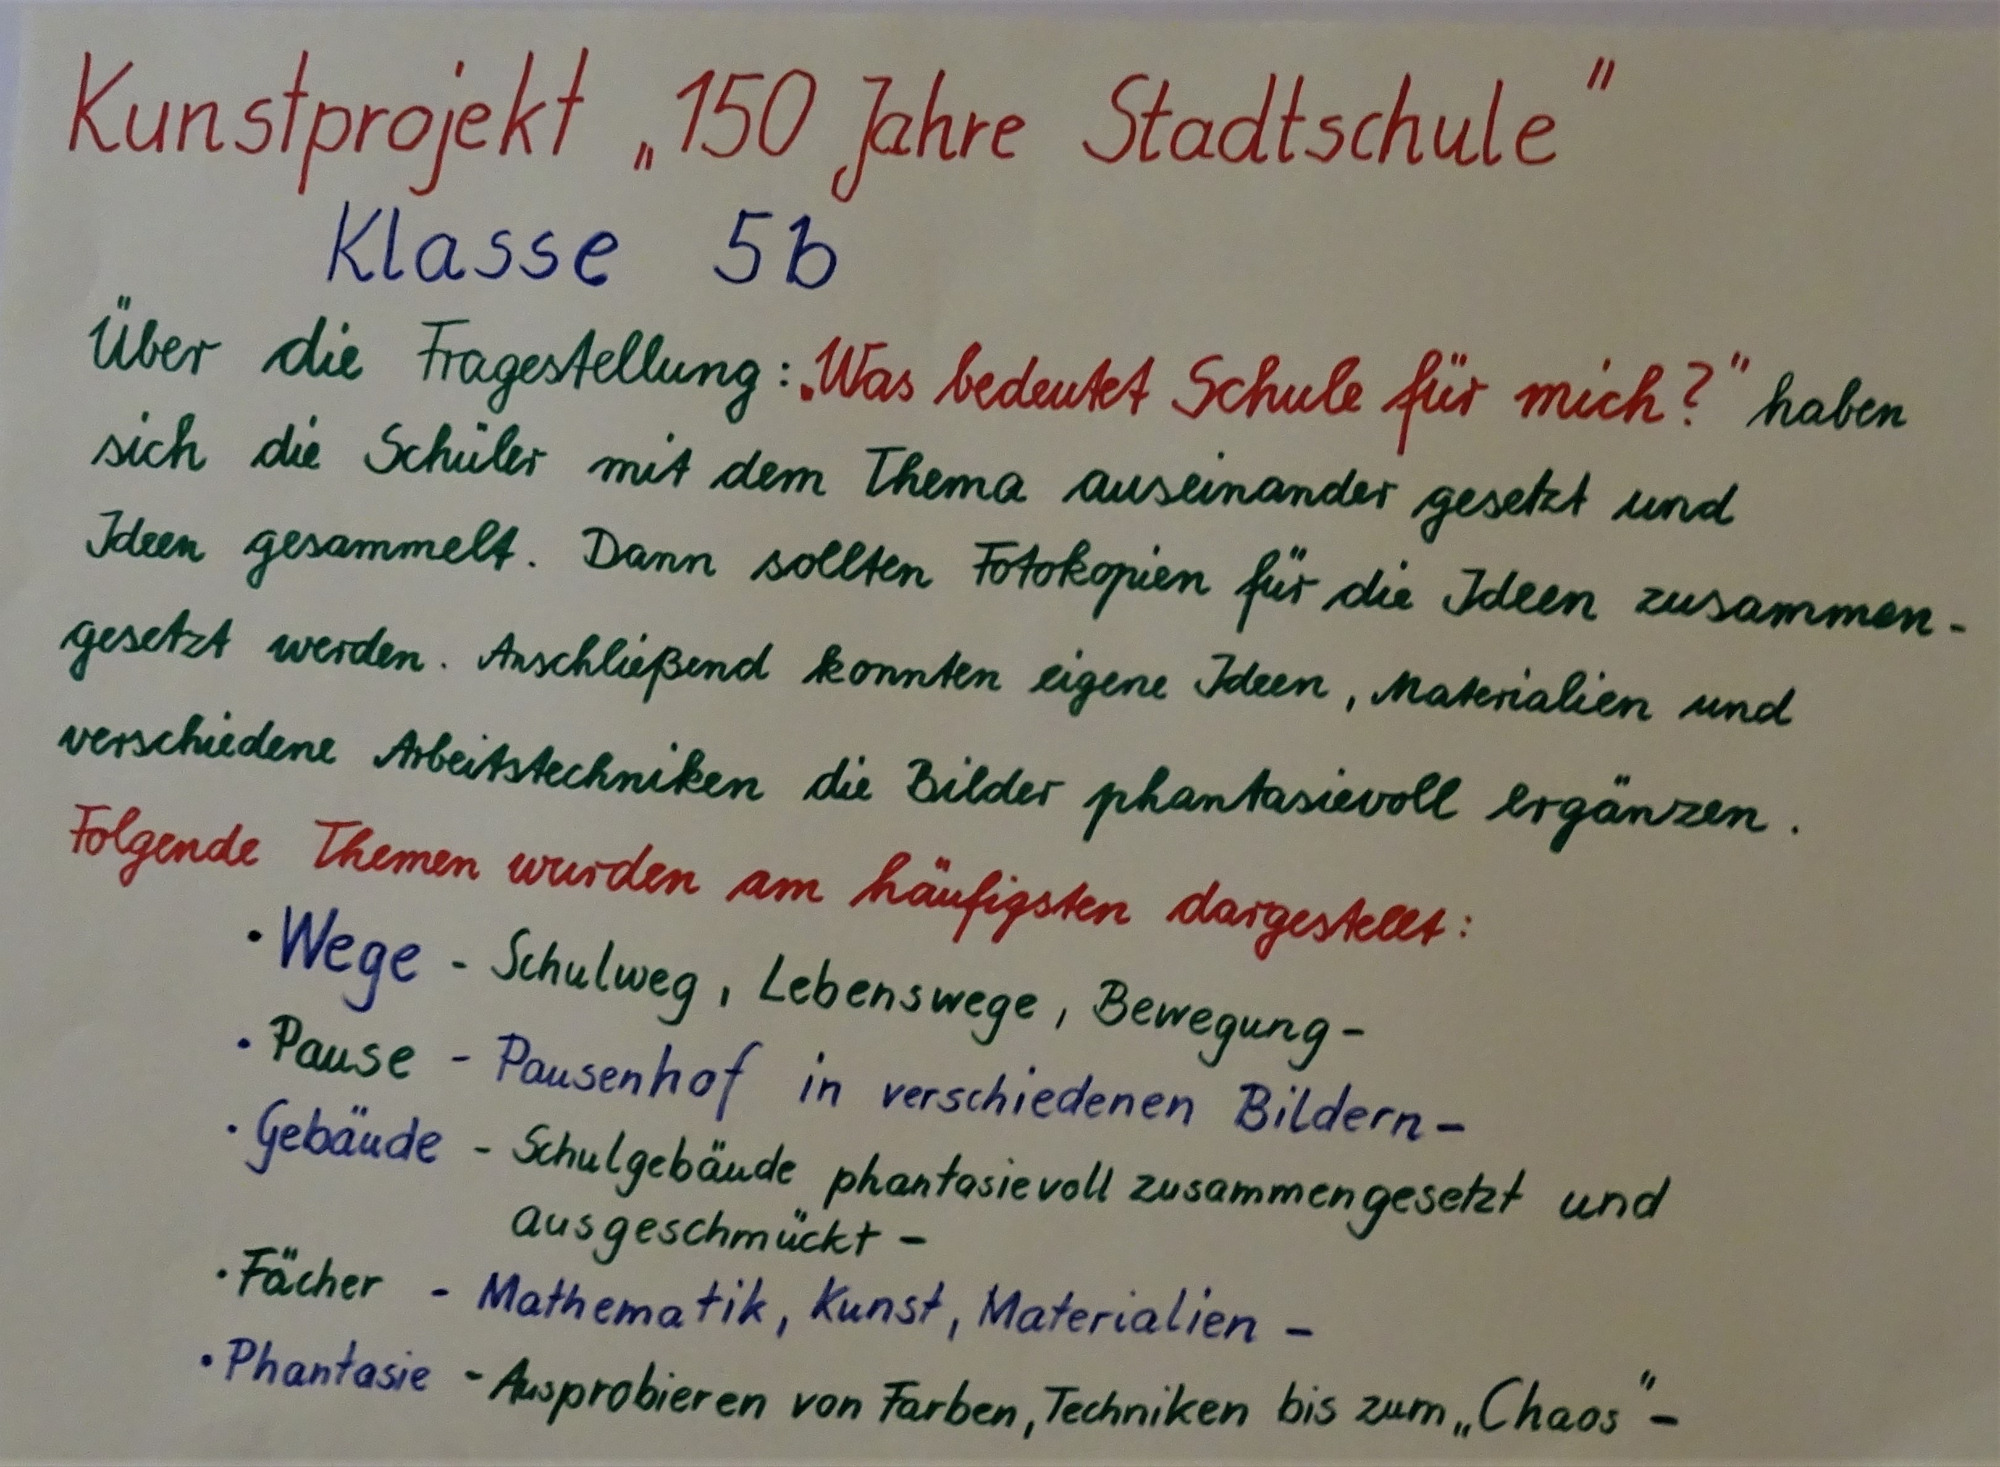 Kunstprojekt „150 Jahre Stadtschule"
Klasse 5b
Über die Fragestellung: „Was bedeutet Schule für mich?" haben
sich die Schüler mit dem Thema auseinander gesetzt und
Ideen gesammelt. Dann sollten Fotokopien für die Ideen zusammen-
gesetzt werden. Anschließend konnten eigene Ideen, Materialien und
verschiedene Arbeitstechniken die Bilder phantasievoll ergänzen.
Folgende Themen wurden am häufigsten dargestellt:
• Wege - Schulweg, Lebenswege, Bewegung -
• Pause - Pausenhof in verschiedenen Bildern -
• Gebäude - Schulgebäude phantasievoll zusammengesetzt und
ausgeschmückt -
• Fächer - Mathematik, Kunst, Materialien -
• Phantasie - Ausprobieren von Farben, Techniken bis zum „Chaos" -